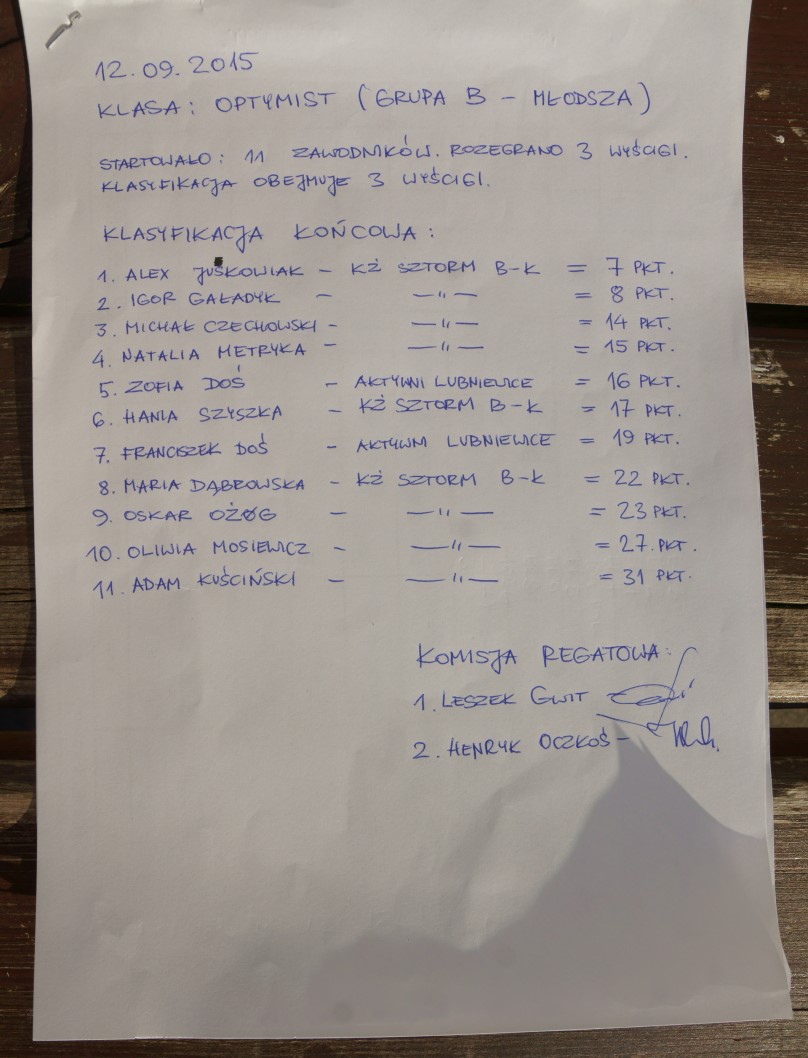 12.09.2015
KLASA: OPTYMIST (GRUPA B - MŁODSZA)
STARTOWAŁO: 11 ZAWODNIKÓW. ROZEGRANO 3 WYŚCIGI.
KLASYFIKACJA OBEJMUJE 3 WYŚCIGI.
KLASYFIKACJA KOŃCOWA:
1. ALEX JUŚKOWIAK - KŻ SZTORM B-K = 7 PKT.
2. IGOR GAŁADYK - —"— = 8 PKT.
3. MICHAŁ CZECHOWSKI - —"— = 14 PKT.
4. NATALIA METRYKA - —"— = 15 PKT.
5. ZOFIA DOŚ - AKTYWNI LUBNIEWICE = 16 PKT.
6. HANIA SZYSZKA - KŻ SZTORM B-K = 17 PKT.
7. FRANCISZEK DOŚ - AKTYWNI LUBNIEWICE = 19 PKT.
8. MARIA DĄBROWSKA - KŻ SZTORM B-K = 22 PKT.
9. OSKAR OŻÓG - —"— = 23 PKT.
10. OLIWIA MOSIEWICZ - —"— = 27. PKT.
11. ADAM KUŚCIŃSKI - —"— = 31 PKT.
KOMISJA REGATOWA:
1. LESZEK GWIT
2. HENRYK OCZKOŚ -